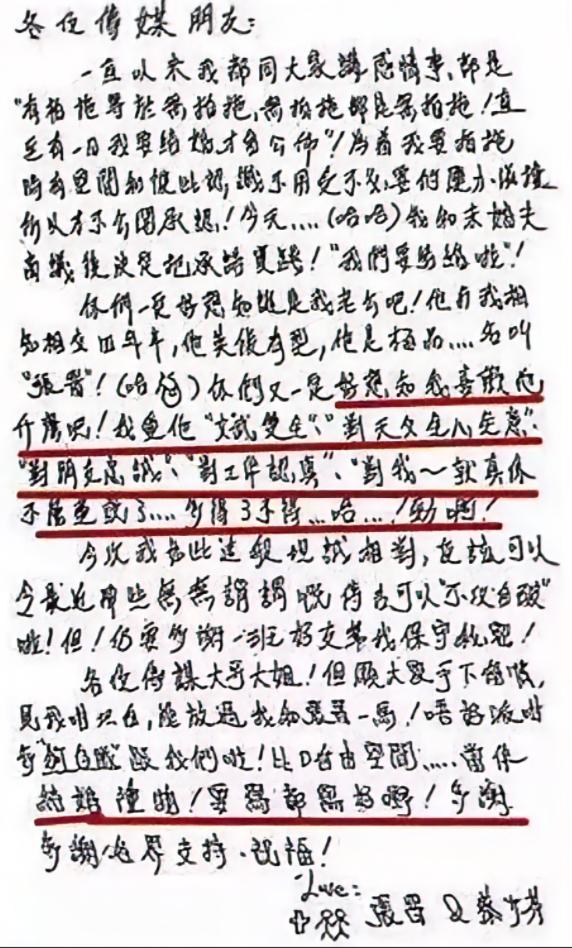 各位傳媒朋友:
一直以來我都同大家講感情事,都是
"有拍拖等於無拍拖,無拍拖即是無拍拖!直
至有一日我要結婚才會公佈"!為着我要拍拖
時有空間和彼此認識不用受不必要的壓力
所以才不公開承認!今天....(哈哈)我和未婚夫
商議後決定把承諾實踐!"我們要結婚啦"!
你們一定好想知誰是我老公吧!他和我相
知相交四年半,他英俊有型,他是極品....名叫
"張晋"!(哈哈)你們又一定好想知我喜歡他
什麼呢!我愛他"文武雙全"、"對天父全心全意"、
"對朋友忠誠"、"對工作認真"、"對我~就真係
不
多得了不得...哈...!勁啊!
今次我如此這般坦誠相對,應該可以
令最近那些無無謂謂嘅傳言可以"不攻自破"
啦!但!仍要多謝一班好友幫我保守秘密!
各位傳媒大哥大姐!但願大家手下留情,
見我咁坦白,能放過我和張晋一馬!唔好派咁
多"狗仔隊"跟我們啦!比D自由空間.....當係
結婚禮物!要寫都寫好嘢!多謝
多謝各界支持、祝福!
Love:
張晋 & 蔡少芬